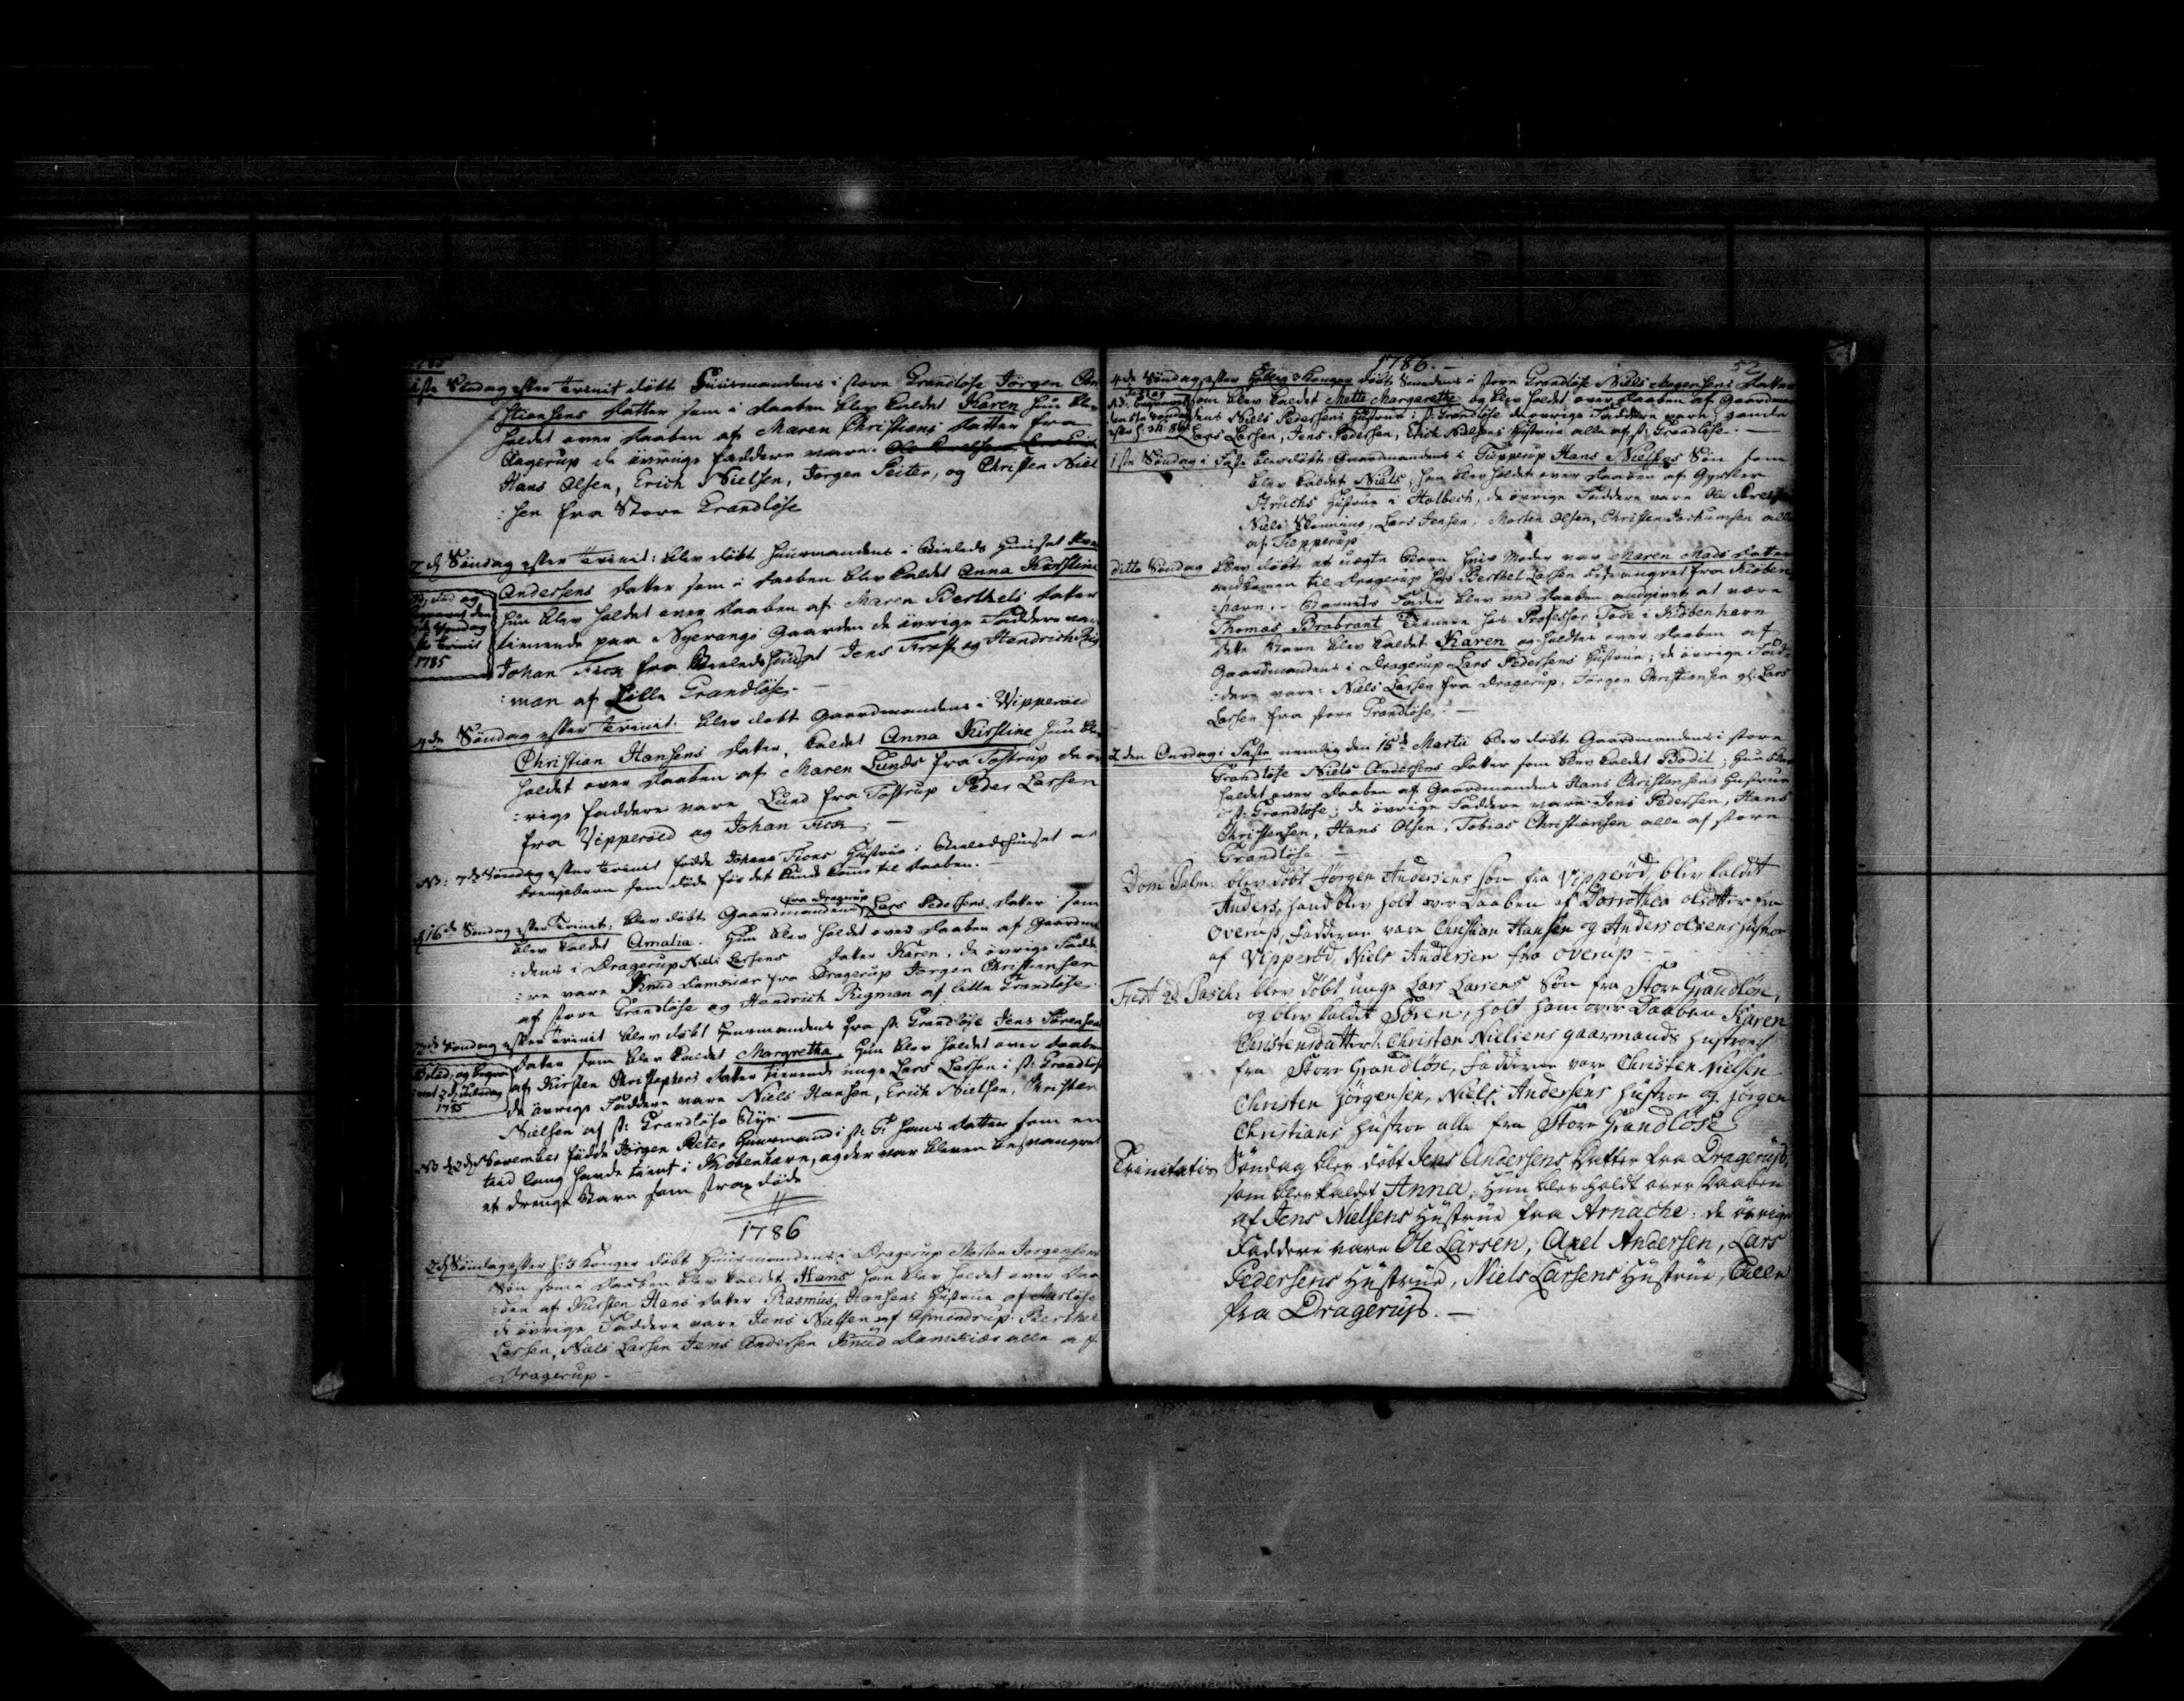 1785
1ste Söndag efter Trinit döbt Huusmandens i store Grandlöse Jörgen Chri
stiansens Datter som i Daaben blev kaldet Karen hun blev
holdet over Daaben af Maren Christians Datter fra
Aagerup de övrige Faddere vare.
Hans Olsen, Erich Nielsen, Jörgen Peiter, og Christen Niel
:sen fra Store Grandlöse
2d Söndag efter Trinit: blev döbt Huusmandens i Huuset
Andersens Datter som i Daaben blev kaldet Anna Kirstine
NB, död og
begravet den
Söndag
efter Trinit
1785
hun blev holdet over Daaben af Maren Berthels Datter
tienende paa Nyevangs Gaarden de övrige Faddere var
Johan Fick fra Jens Trost og Hendrich Rig
:man af Lille Grandlöse. —
4de Söndag efter Trinit: blev döbt Gaardmandens i Vipperöd
Christian Hansens Datter, kaldet Anna Kirstine hun blev
holdet over Daaben af Maren Lunds fra Tostrup de öv
:rige Faddere vare Lund fra Tostrup Peder Larsen
fra Vipperöed og Johan Fick. —
NB: 7d Söndag efter Trinit födde Johans Ficks Hustrue i et
drengebarn som döde för det kunde komme til Daaben. —
d 16de Söndag efter Trinit: blev döbt Gaardmandens fra Dragerup Lars Pedersens Datter som
blev kaldet Amalia. Hun blev holdet over Daaben af Gaardman
:dens i Dragerup Niels Larsens Datter Karen, de övrige Fadde
:re vare Knud Damkiær fra Dragerup Jörgen Christiansen
af store Grandlöse og Hendrich Rigman af lille Grandlöse.
Söndag efter Trinit blev döbt Huusmandens fra st: Grandlöse Jens Sörensens
Datter som blev kaldet Margretha, hun blev holdet over Daaben
död, og begra
vet
1785
af Kirsten Christophers Datter tienende unge Lars Larsen i st: Grandlöse
de övrige Faddere vare Niels Hansen, Erich Nielsen, Christen
Nielsen af st: Grandlöse Bye. —
NB d 2d November födde Jörgen Peter Huusmand i st: G: hans Datter som en
tiid lang havde tient i Kiöbenhavn, og der var bleven besvangret
et drenge Barn som strax döde
1786
2d Söndag efter h: 3 Konger döbt Huusmandens i Dragerup Morten Jorgensens
Sön som i Daaben blev kaldet Hans han blev holdet over Daa
:ben af Kirsten Hans Datter Rasmus Hansens Hustrue af
de övrige Faddere vare Jens Nielsen af Asmendrup Berthel
Larsen, Niels Larsen Jens Andersen Knud Damkiær alle af
Dragerup. —
1786. —
52
4de Söndag efter Hellig 3 Konger döbt Smedens i store Grandlöse Niels Mogensens Datter
NB. begravet
som blev kaldet Mette Margarethe og blev holdet over Daaben af Gaardman
dens Niels Pedersens Hustrue i st: Grandlöse de övrige Faddere vare
Lars Larsen, Jens Pedersen, Erich Nielsens Hustrue alle af st: Grandlöse. —
1ste Söndag i Faste blev döbt Gaardmandens i Tiepperup Hans Nielsens Sön som
blev kaldet Niels, han blev holdet over Daaben af
Struchs Hustrue i Holbech, de övrige Faddere vare Ole
Niels Lars Jensen, Morten Olsen, Christen Jochumsen alle
af Tiepperup
ditto Söndag blev döbt et uægte Barn hvis Moder var Maren Mads Datter
ankommen til Dragerup hos Berthel Larsen besvangret fra Kiöben
:havn. — Barnets Fader blev ved Daaben angivet at være
Thomas Brabrant Tienere hos Professor Tode i Kiöbenhavn
dette Barn blev kaldet Karen og holdtes over Daaben af
Gaardmandens i Dragerup Lars Pedersens Hustrue; de övrige Fad
:dere vare: Niels Larsen fra Dragerup, Jörgen Christiansen gl: Lars
Larsen fra store Grandlöse. —
2den Onsdag i Faste nemlig den 15de Martii blev döbt Gaardmandens i store
Grandlöse Niels Andersens Datter som blev kaldet Bodil; hun blev
holdet over Daaben af Gaardmandens Hans Christensens Hustrue
i st: Grandlöse; de övrige Faddere vare Jens Pedersen, Hans
Christensen, Hans Olsen, Tobias Christiansen alle af store
Grandlöse —
Dom: Palm: blev döbt Jörgen Andersens Sön fra Vipperöd, blev kaldet
Anders, hand blev holt over Daaben af Dorrothea Olsdatter fra
Overup, Fadderne vare Christian Hansen og Anders Olsens Hustroe
af Vipperöd, Niels Andersen fra Overup
Fest 2d Pasch: blev döbt unge Lars Larsens Sön fra Store Grandlöse,
og blev kaldet Sören, holt ham over Daaben Karen
Christensdatter, Christen Nielsens gaarmands Hustroe
fra Store Grandlöse, Fadderne vare Christen Nielsen
Christen Jörgensen, Niels Andersens Hustroe og Jörgen
Christians Hustroe alle fra Store Grandlöse
Trinitatis Söndag blev döbt Jens Andersens Datter fra Dragerup,
som blev kaldet Anna, hun blev holdt over Daaben
af Jens Nielsens Hustrue fra Arnache: de övrige
Faddere vare Ole Larsen, Axel Andersen, Lars
Pedersens Hustrue, Niels Larsens Hustrue, Alle
fra Dragerup. —